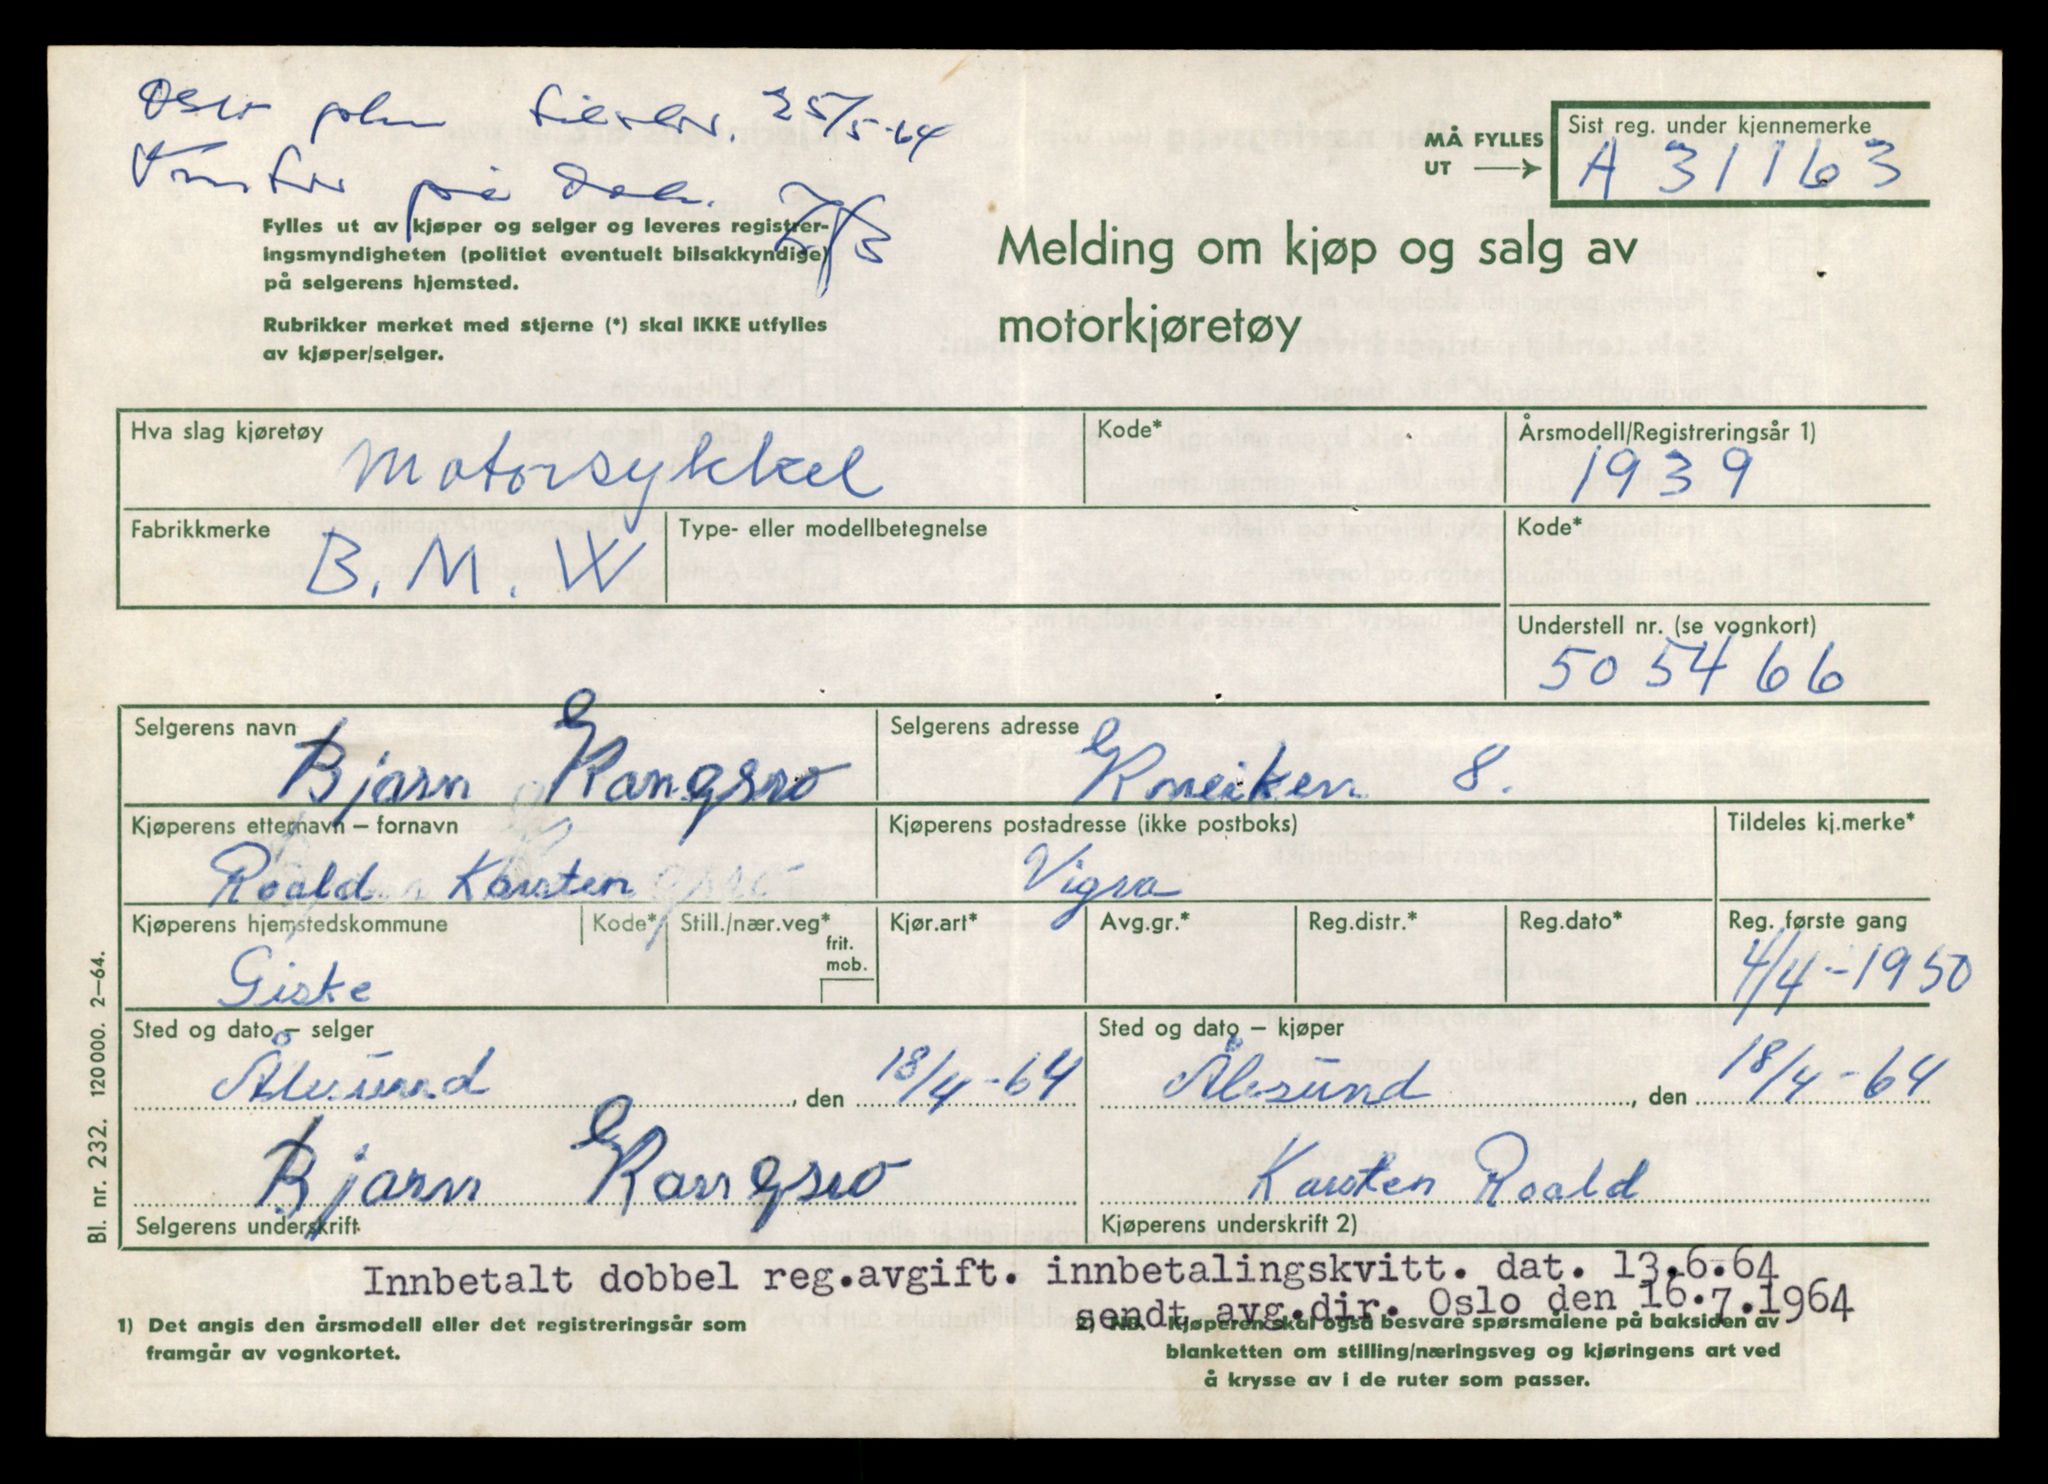 Oslo 25/5-64
på
MÅ FYLLES
UT
Sist reg. under kjennemerke
A 31163
Fylles ut av kjøper og selger og leveres registrer-
ingsmyndigheten (politiet eventuelt bilsakkyndige)
på selgerens hjemsted.
Rubrikker merket med stjerne (*) skal IKKE utfylles
av kjøper/selger.
Melding om kjøp og salg av
motorkjøretøy
Hva slag kjøretøy
Motorsykkel
Kode*
Årsmodell/Registreringsår 1)
1939
Fabrikkmerke
B.M.W
Type- eller modellbetegnelse
Kode*
Understell nr. (se vognkort)
505466
Selgerens navn
Bjørn Kongsro
Selgerens adresse
Kneiken 8.
Kjøperens etternavn – fornavn
Roald Karsten
Kjøperens postadresse (ikke postboks)
Vigra
Tildeles kj.merke*
Kjøperens hjemstedskommune
Giske
Kode*
Still./nær.veg*
frit.
mob.
Kjør.art*
Avg.gr.*
Reg.distr.*
Reg.dato*
Reg. første gang
4/4-1950
Sted og dato – selger
Ålesund, den 18/4-64
Sted og dato – kjøper
Ålesund, den 18/4-64
Bjørn Kongsro
Selgerens underskrift
Karsten Roald
Kjøperens underskrift 2)
Innbetalt dobbel reg.avgift. innbetalingskvitt. dat. 13.6.64
sendt avg.dir. Oslo den 16.7.1964
1) Det angis den årsmodell eller det registreringsår som
framgår av vognkortet.
2) NB. Kjøperen skal også besvare spørsmålene på baksiden av
blanketten om stilling/næringsveg og kjøringens art ved
å krysse av i de ruter som passer.
Bl. nr. 232. 120 000. 2–64.